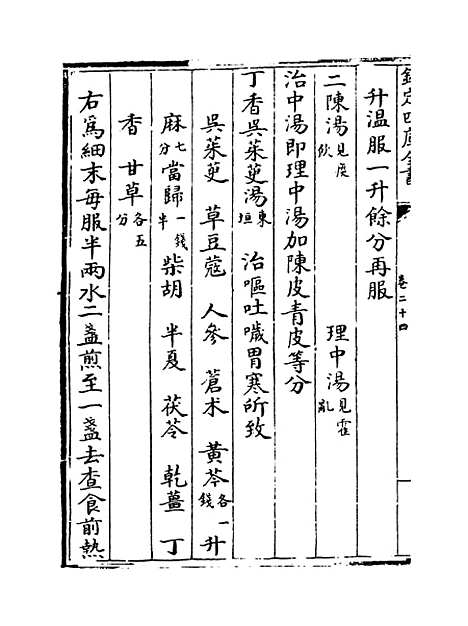 欽定四庫全書
卷二十四
升温服一升餘分再服
二陳湯見痰飲 理中湯見霍亂
治中湯即理中湯加陳皮青皮等分
丁香吳茱萸湯東垣 治嘔吐噦胃寒所致
吳茱萸 草豆蔻 人參 蒼术 黃芩各一錢 升
麻七分 當歸一錢半 柴胡 半夏 茯苓 乾薑 丁
香 甘草各五分
右爲細末每服半兩水二盞煎至一盞去查食前熱